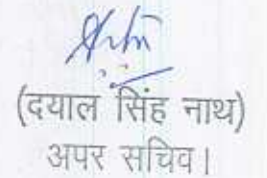 (दयाल सिंह नाथ)
अपर सचिव।